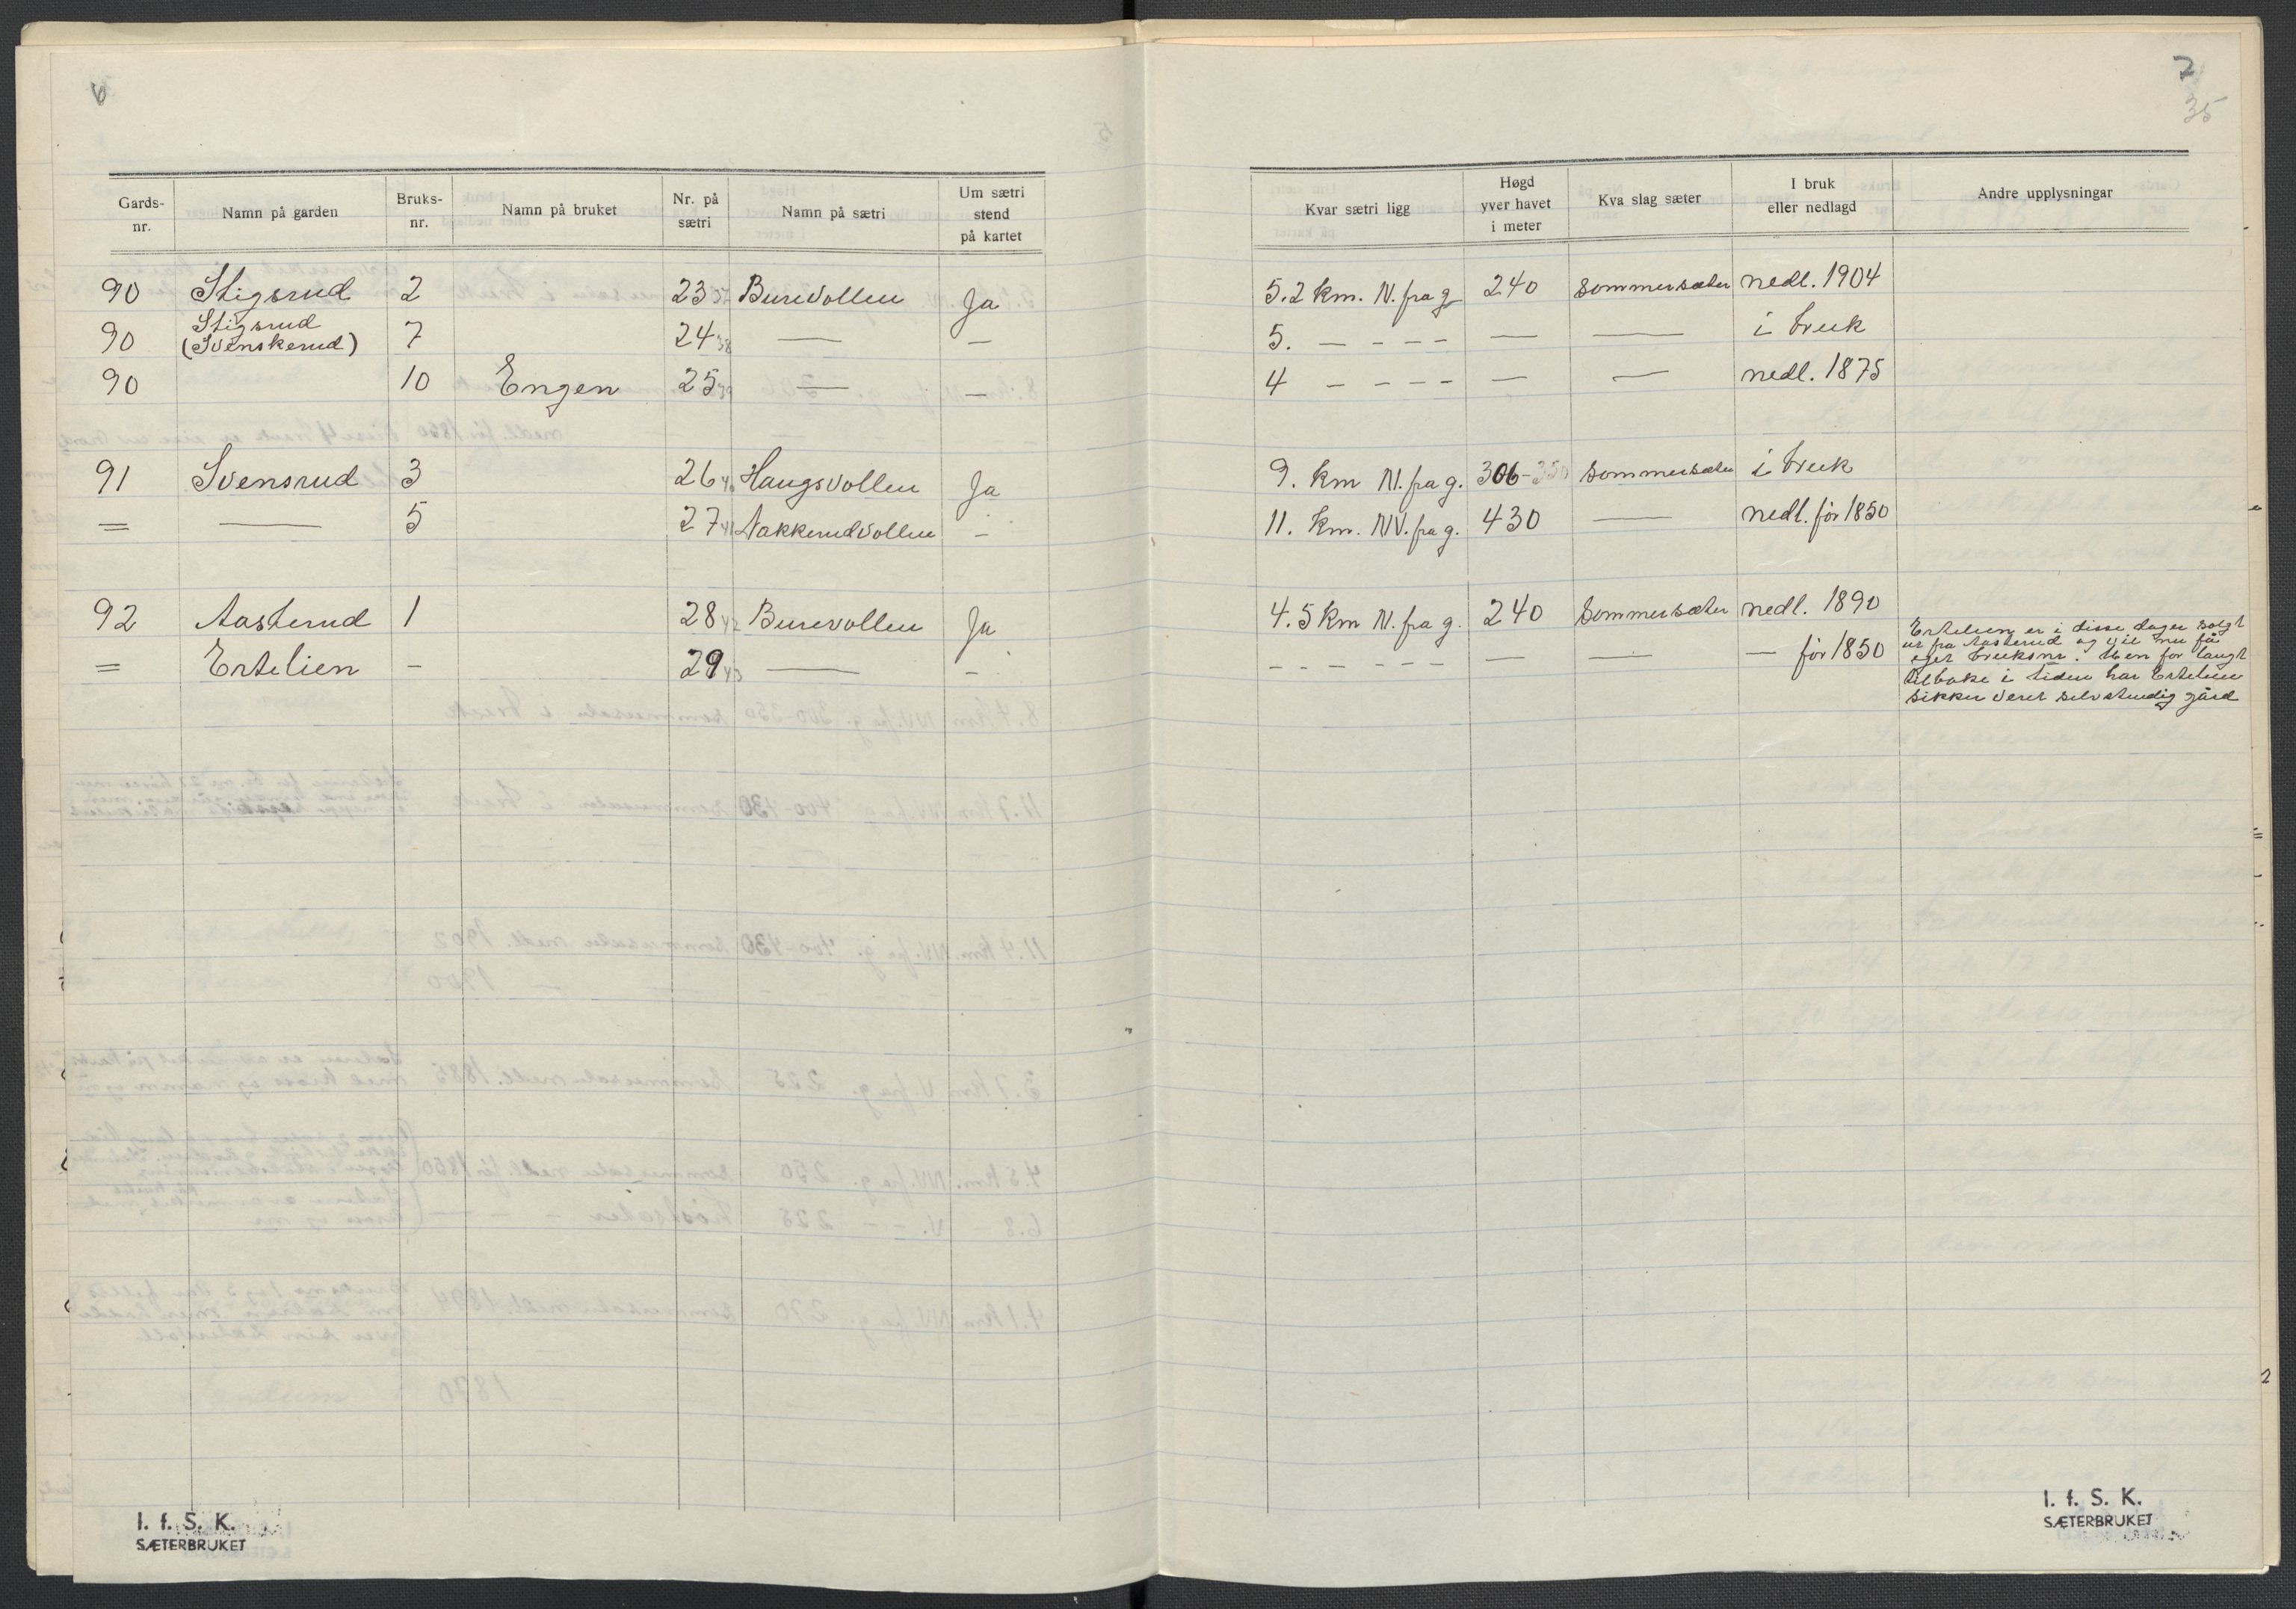 6
Gards-nr. Namn på garden Bruks-nr. Namn på bruket Nr. på sætri Namn på sætri Um sætri stend på kartet
90 Stigsrud 2 23 37 Burevollen Ja
90 Stigsrud (Svenskerud) 7 24 38 — —
90 10 Engen 25 39 — —
91 Svensrud 3 26 40 Haugsvollen Ja
= — 5 27 41 Nakkerudvollen —
92 Aasterud 1 28 42 Burevollen Ja
= Ertelien - 29 43 — —
I. f. S. K.
SÆTERBRUKET
7
35
Kvar sætri ligg Høgd yver havet i meter Kva slag sæter I bruk eller nedlagd Andre upplysningar
5.2 km. N. fra g 240 sommersæter nedl. 1904
5. — — — — — — i bruk
4 — — — — — — nedl. 1875
9. km N. fra g. 306-350 sommersæter i bruk
11. km. NV. fra g. 430 — nedl. för 1850
4.5 km N. fra g. 240 sommersæter nedl. 1890
— — — — — — — — — för 1850
Ertelien er i disse dager solgt
ut fra Aasterud og vil nu få
eget bruksnr. Men for langt
tilbake i tiden har Ertelien
sikker veret selvstendig gård
I. f. S. K.
SÆTERBRUKET